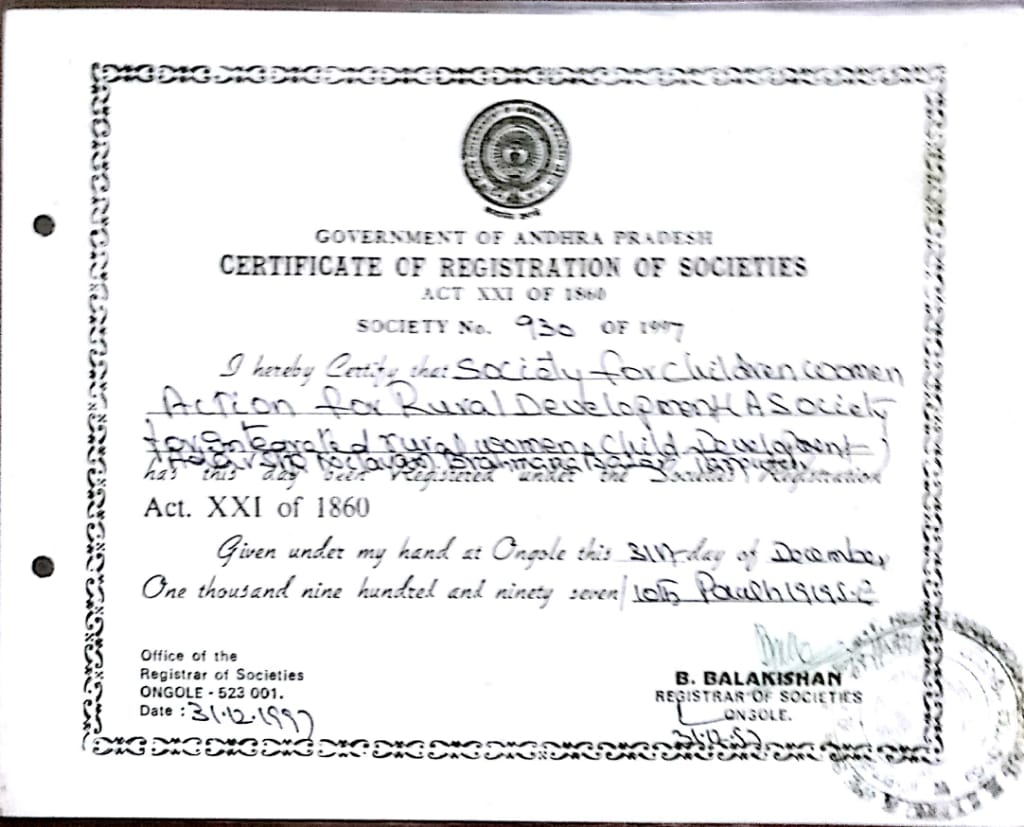 GOVERNMENT OF ANDHRA PRADESH
CERTIFICATE OF REGISTRATION OF SOCIETIES
ACT XXI OF 1860
SOCIETY No. 930 OF 1997
I hereby Certify that Society for Children women
Action for Rural Development (A Society
for Integrated rural women & Child Development)
has this day been Registered under the Societies Registration
Act. XXI of 1860
Given under my hand at Ongole this 31st day of December
One thousand nine hundred and ninety seven/ 10th 1919
Office of the
Registrar of Societies
ONGOLE - 523 001.
Date : 31.12.1997
B. BALAKISHAN
REGISTRAR OF SOCIETIES
ONGOLE.
31.12.97